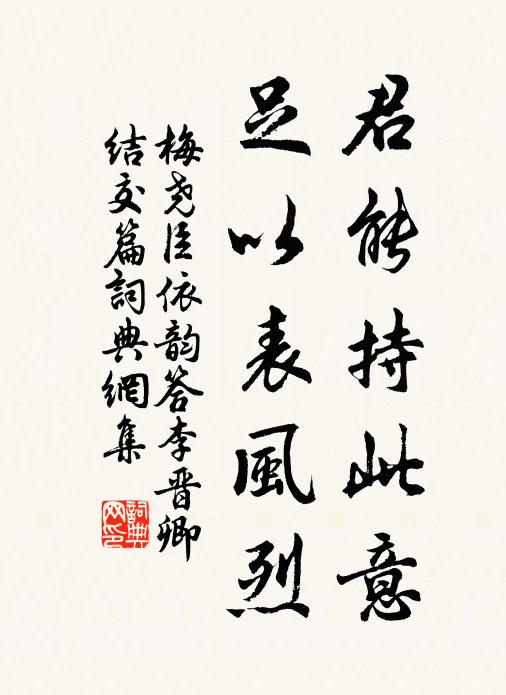 君能持此意
足以表風烈
梅尧臣依韵答李晋卿
结交篇詞典網集
詞典
网印